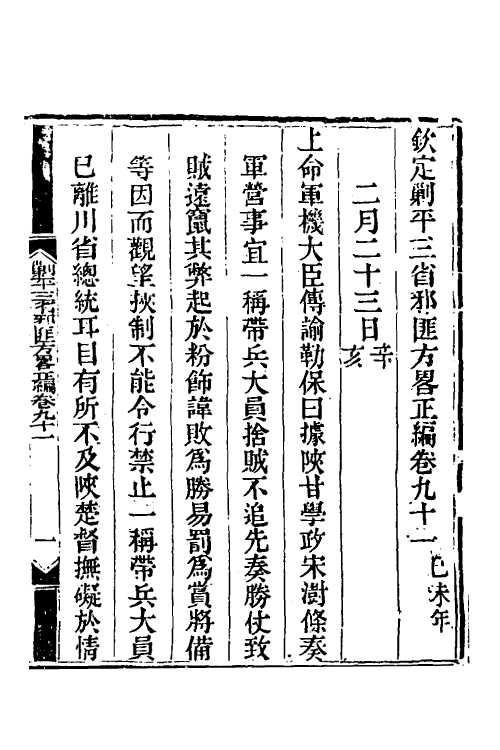 欽定剿平三省邪匪方畧正編卷九十一 己未年
二月二十三日辛亥
上命軍機大臣傳諭勒保曰據陝甘學政宋澍條奏
軍營事宜一稱帶兵大員捨賊不追先奏勝仗致
賊遠竄其弊起於粉飾諱敗為勝易罰為賞將備
等因而觀望挾制不能令行禁止一稱帶兵大員
已離川省總統耳目有所不及陝楚督撫礙於情
剿平三省邪匪方畧正編卷九十一
一